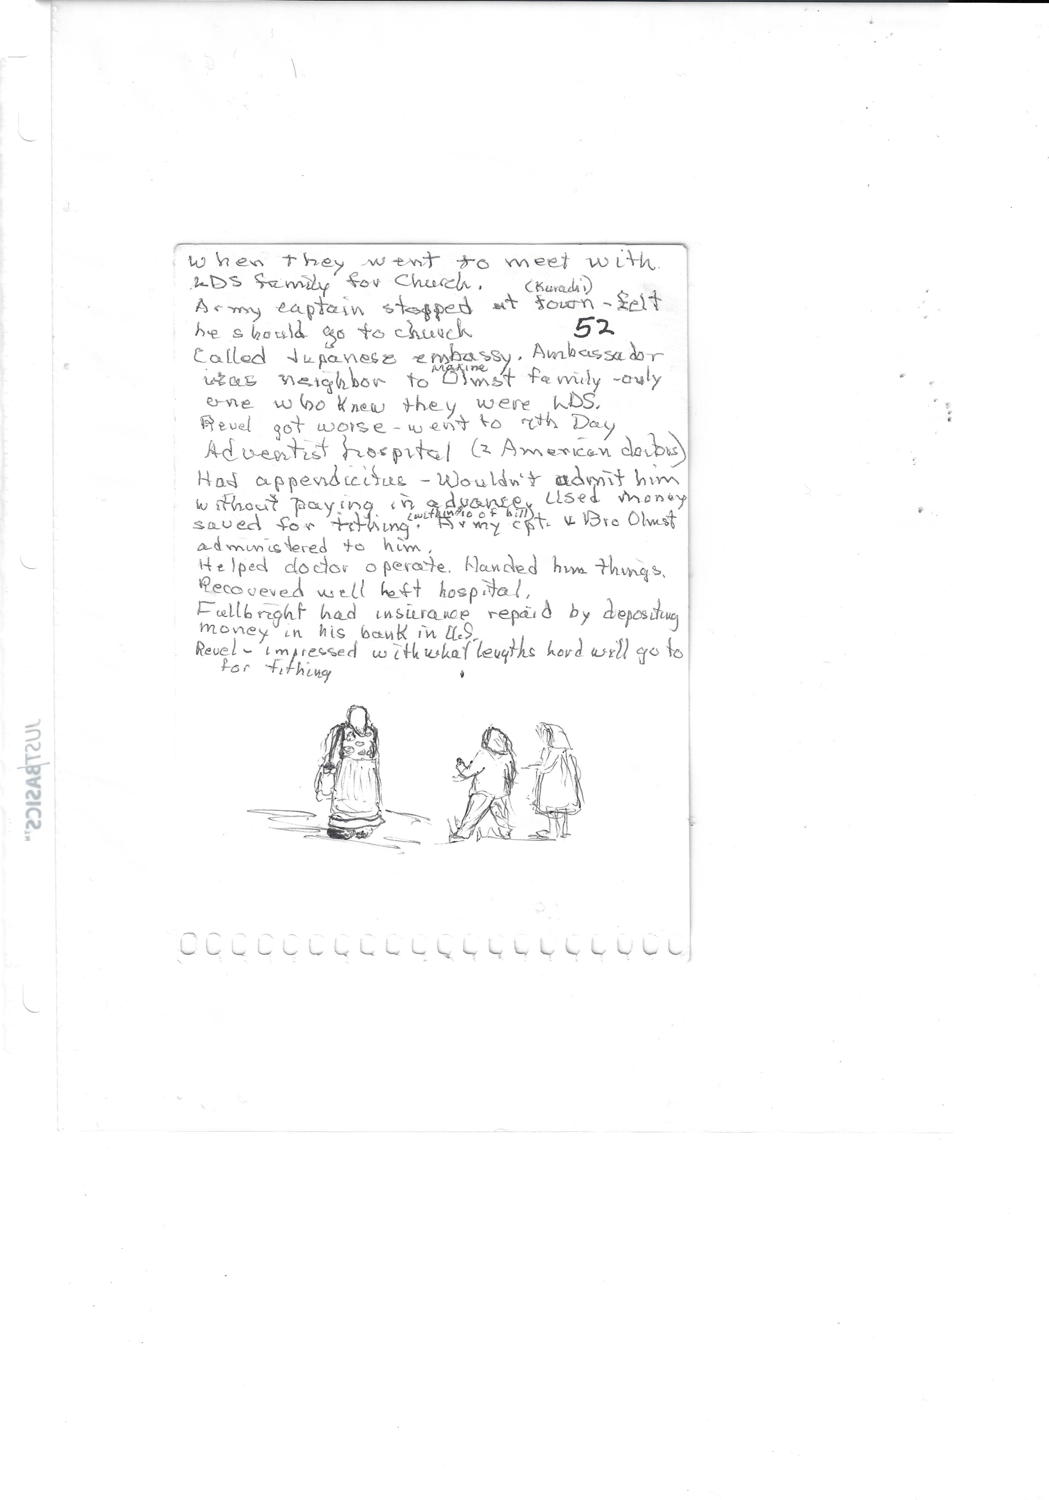 When they went to meet with
LDS family for Church. (Karachi)
Army captain stopped at town - felt
he should go to church 52
Called Japanese embassy. Ambassador
was neighbor to Maxine Olmst family - only
one who knew they were LDS.
Revel got worse - went to 7th Day
Adventist hospital (2 American doctors)
Had appendicitus - Wouldn't admit him
without paying in advance. Used money
saved for tithing. (within $10 of bill) Army cpt. & Bro Olmst
administered to him.
Helped doctor operate. Handed him things.
Recovered well left hospital.
Fullbright had insurance repaid by depositing
money in his bank in U.S.
Revel - impressed with what lengths Lord will go to
for tithing
JUSTBASICS™